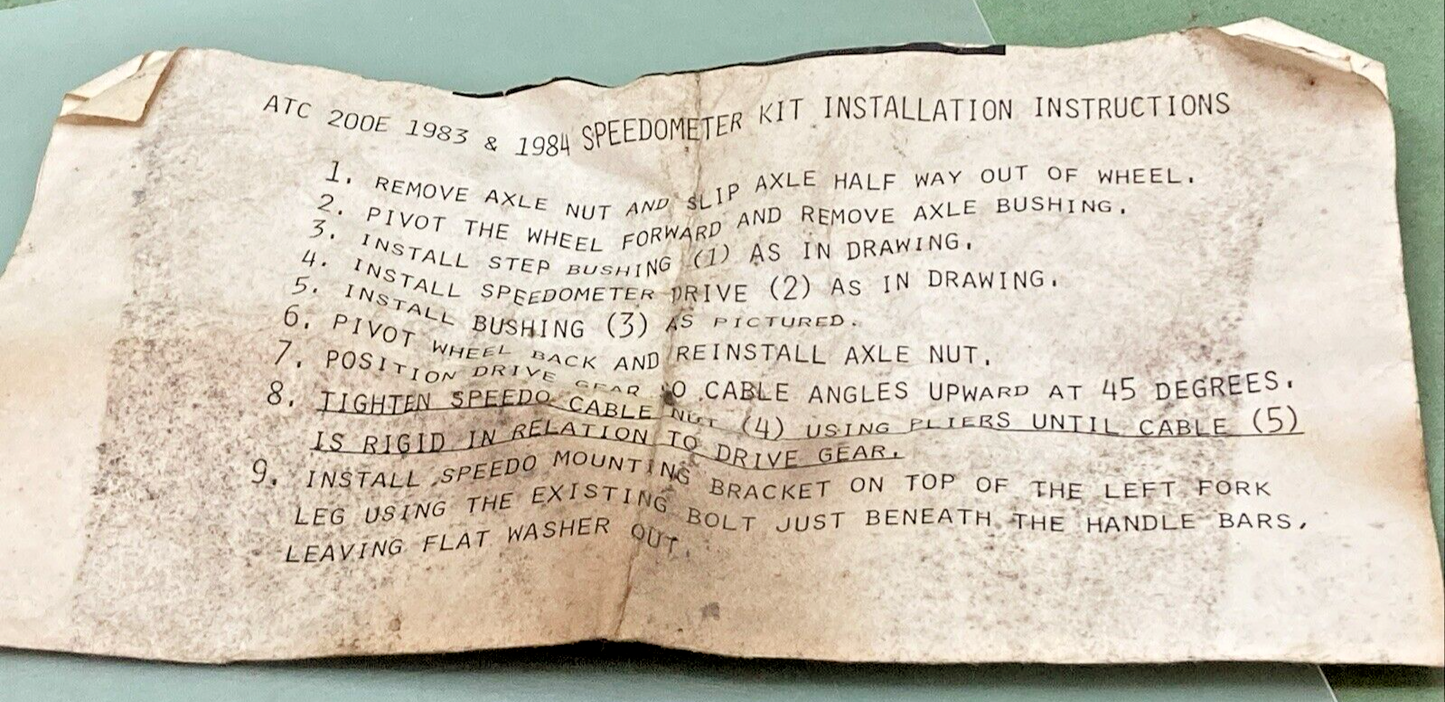 ATC 200E 1983 & 1984 SPEEDOMETER KIT INSTALLATION INSTRUCTIONS
1. REMOVE AXLE NUT AND SLIP AXLE HALF WAY OUT OF WHEEL.
2. PIVOT THE WHEEL FORWARD AND REMOVE AXLE BUSHING.
3. INSTALL STEP BUSHING (1) AS IN DRAWING.
4. INSTALL SPEEDOMETER DRIVE (2) AS IN DRAWING.
5. INSTALL BUSHING (3) AS PICTURED.
6. PIVOT WHEEL BACK AND REINSTALL AXLE NUT.
7. POSITION DRIVE GEAR SO CABLE ANGLES UPWARD AT 45 DEGREES.
8. TIGHTEN SPEEDO CABLE NUT (4) USING PLIERS UNTIL CABLE (5)
IS RIGID IN RELATION TO DRIVE GEAR.
9. INSTALL SPEEDO MOUNTING BRACKET ON TOP OF THE LEFT FORK
LEG USING THE EXISTING BOLT JUST BENEATH THE HANDLE BARS,
LEAVING FLAT WASHER OUT.